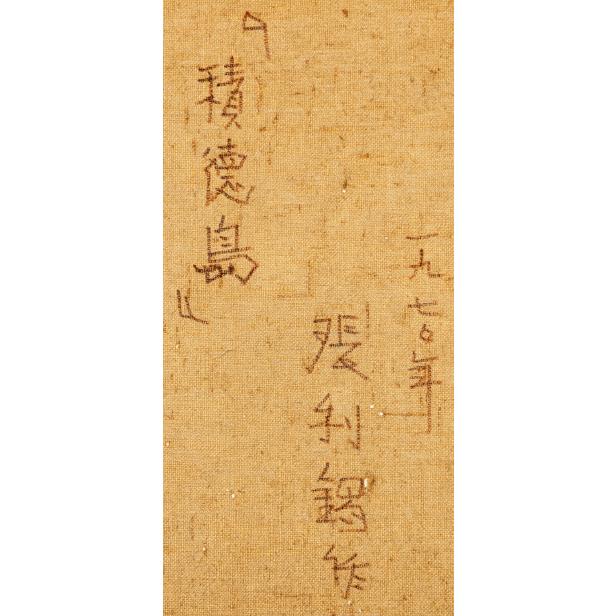 一九七〇年
張利錫作
「積德島」